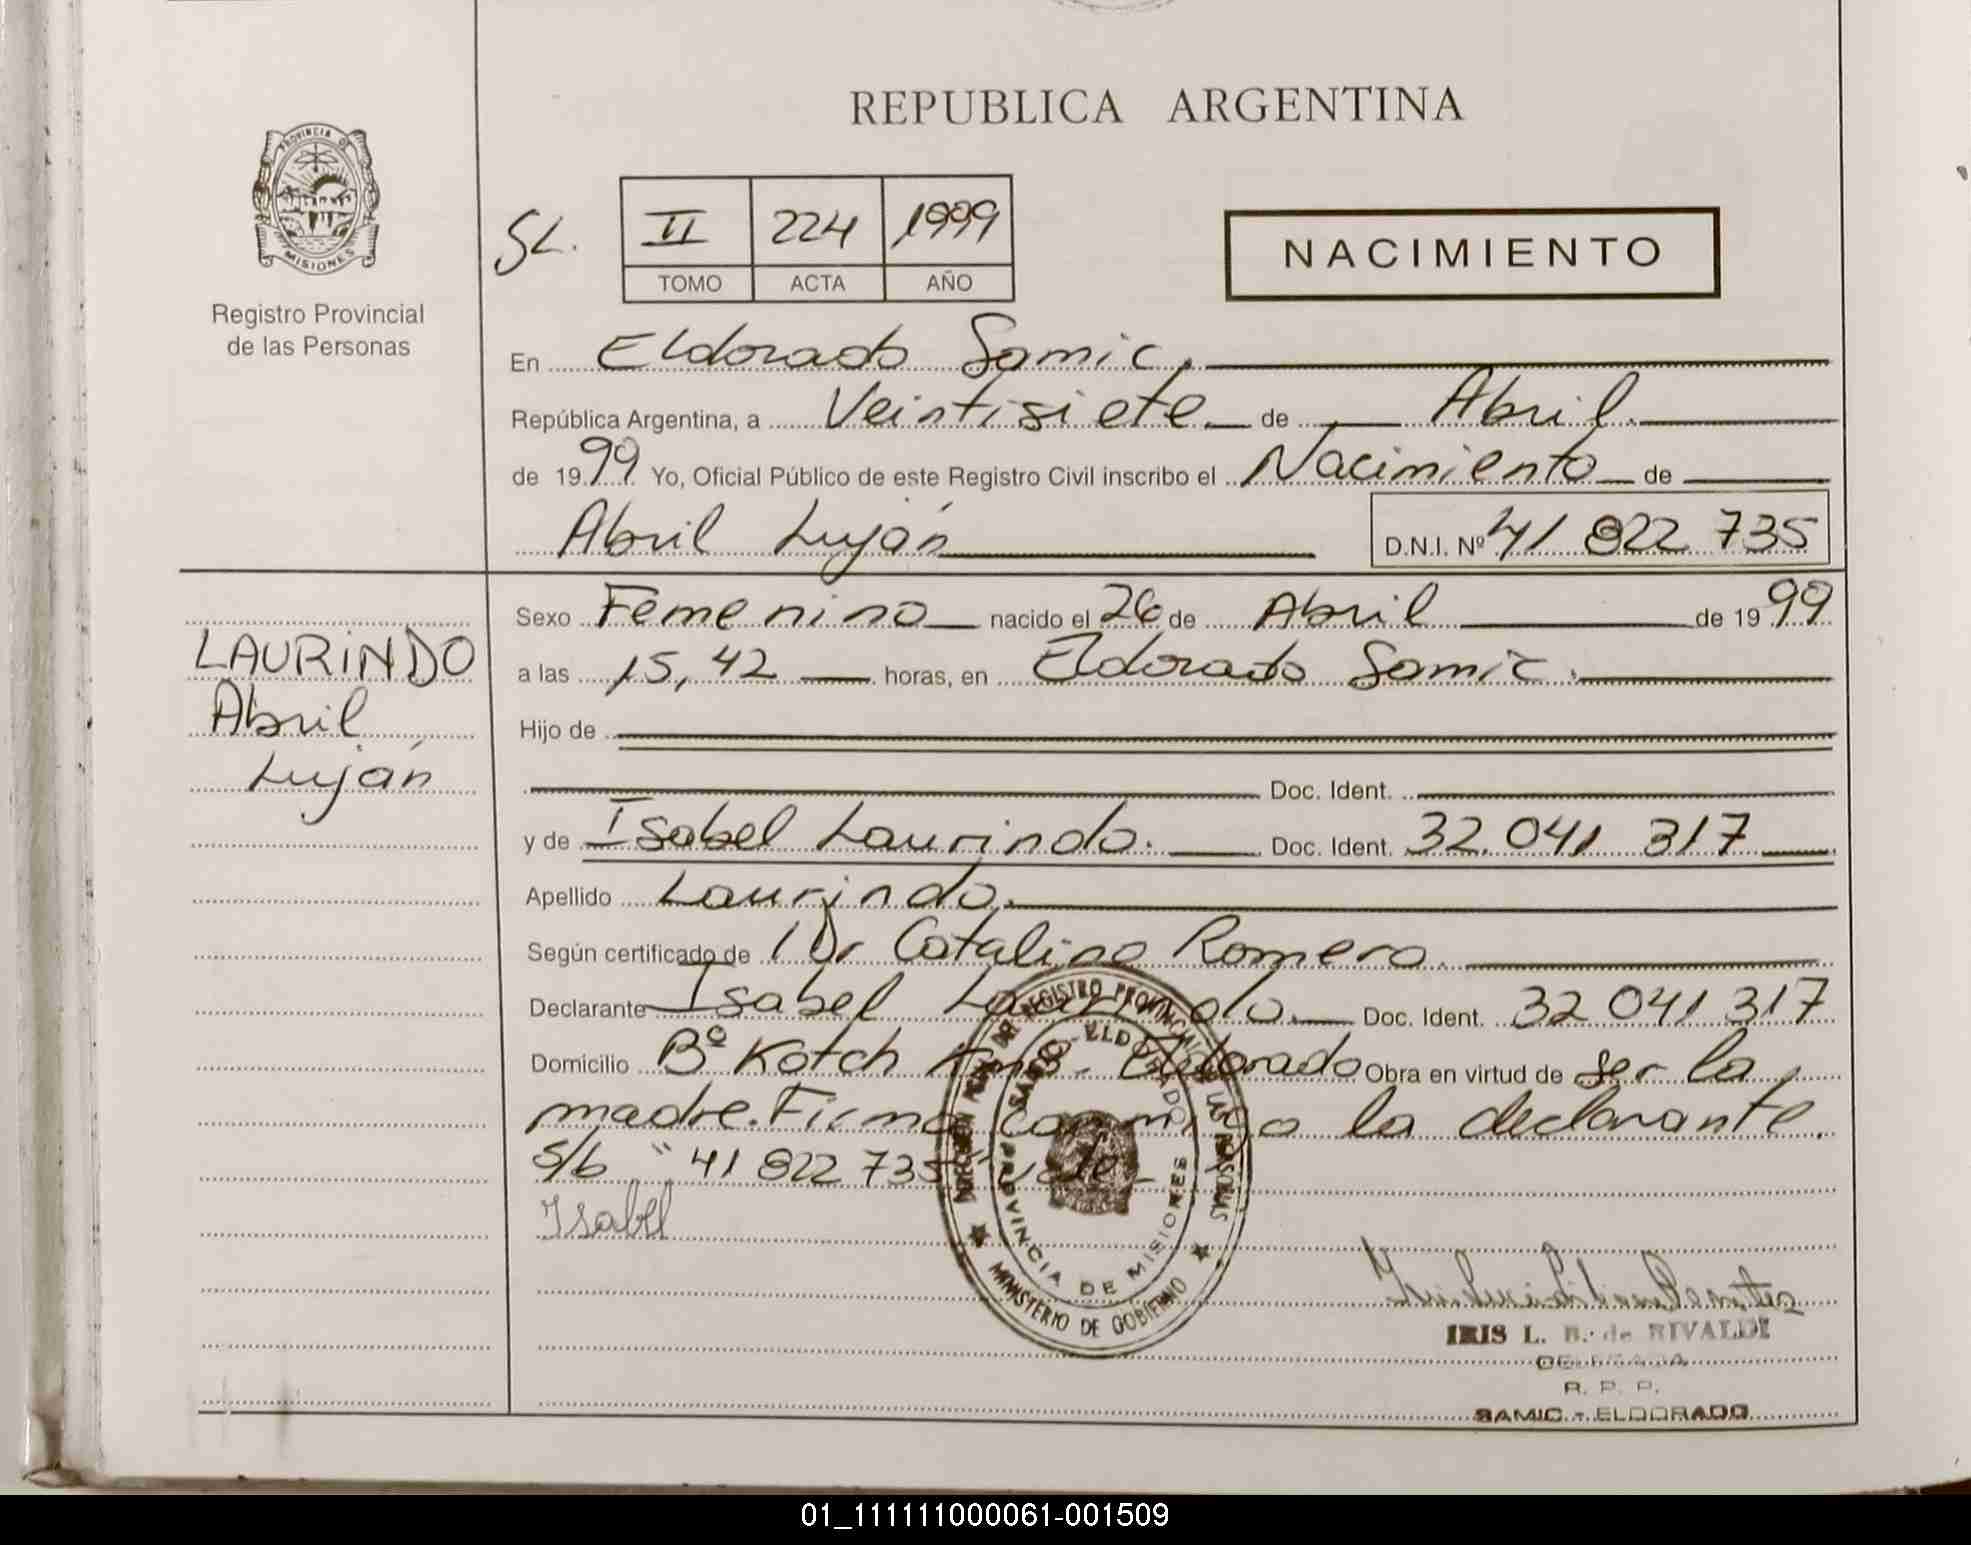 REPUBLICA ARGENTINA
PROVINCIA DE
MISIONES
Registro Provincial
de las Personas
SL.
II 224 1999
TOMO ACTA AÑO
NACIMIENTO
En Eldorado Samic.
República Argentina, a Veintisiete de Abril.
de 1999 Yo, Oficial Público de este Registro Civil inscribo el Nacimiento de
Abril Luján D.N.I. Nº 41 822 735
LAURINDO
Abril
Luján
Sexo Femenino nacido el 26 de Abril de 1999
a las 15,42 horas, en Eldorado Samic.
Hijo de
Doc. Ident.
y de Isabel Laurindo. Doc. Ident. 32.041 317
Apellido Laurindo.
Según certificado de Dr Catalino Romero.
Declarante Isabel Laurindo. Doc. Ident. 32 041 317
Domicilio Bº Kotch Eldorado Obra en virtud de ser la
madre. Firma conmigo la declarante.
s/b "41 822 735" vale-
Isabel
REGISTRO PROVINCIAL DE LAS PERSONAS
SAMIC - ELDORADO
PROVINCIA DE MISIONES
MINISTERIO DE GOBIERNO
IRIS L. B. de RIVALDI
DELEGADA
R. P. P.
SAMIC - ELDORADO
01_111111000061-001509